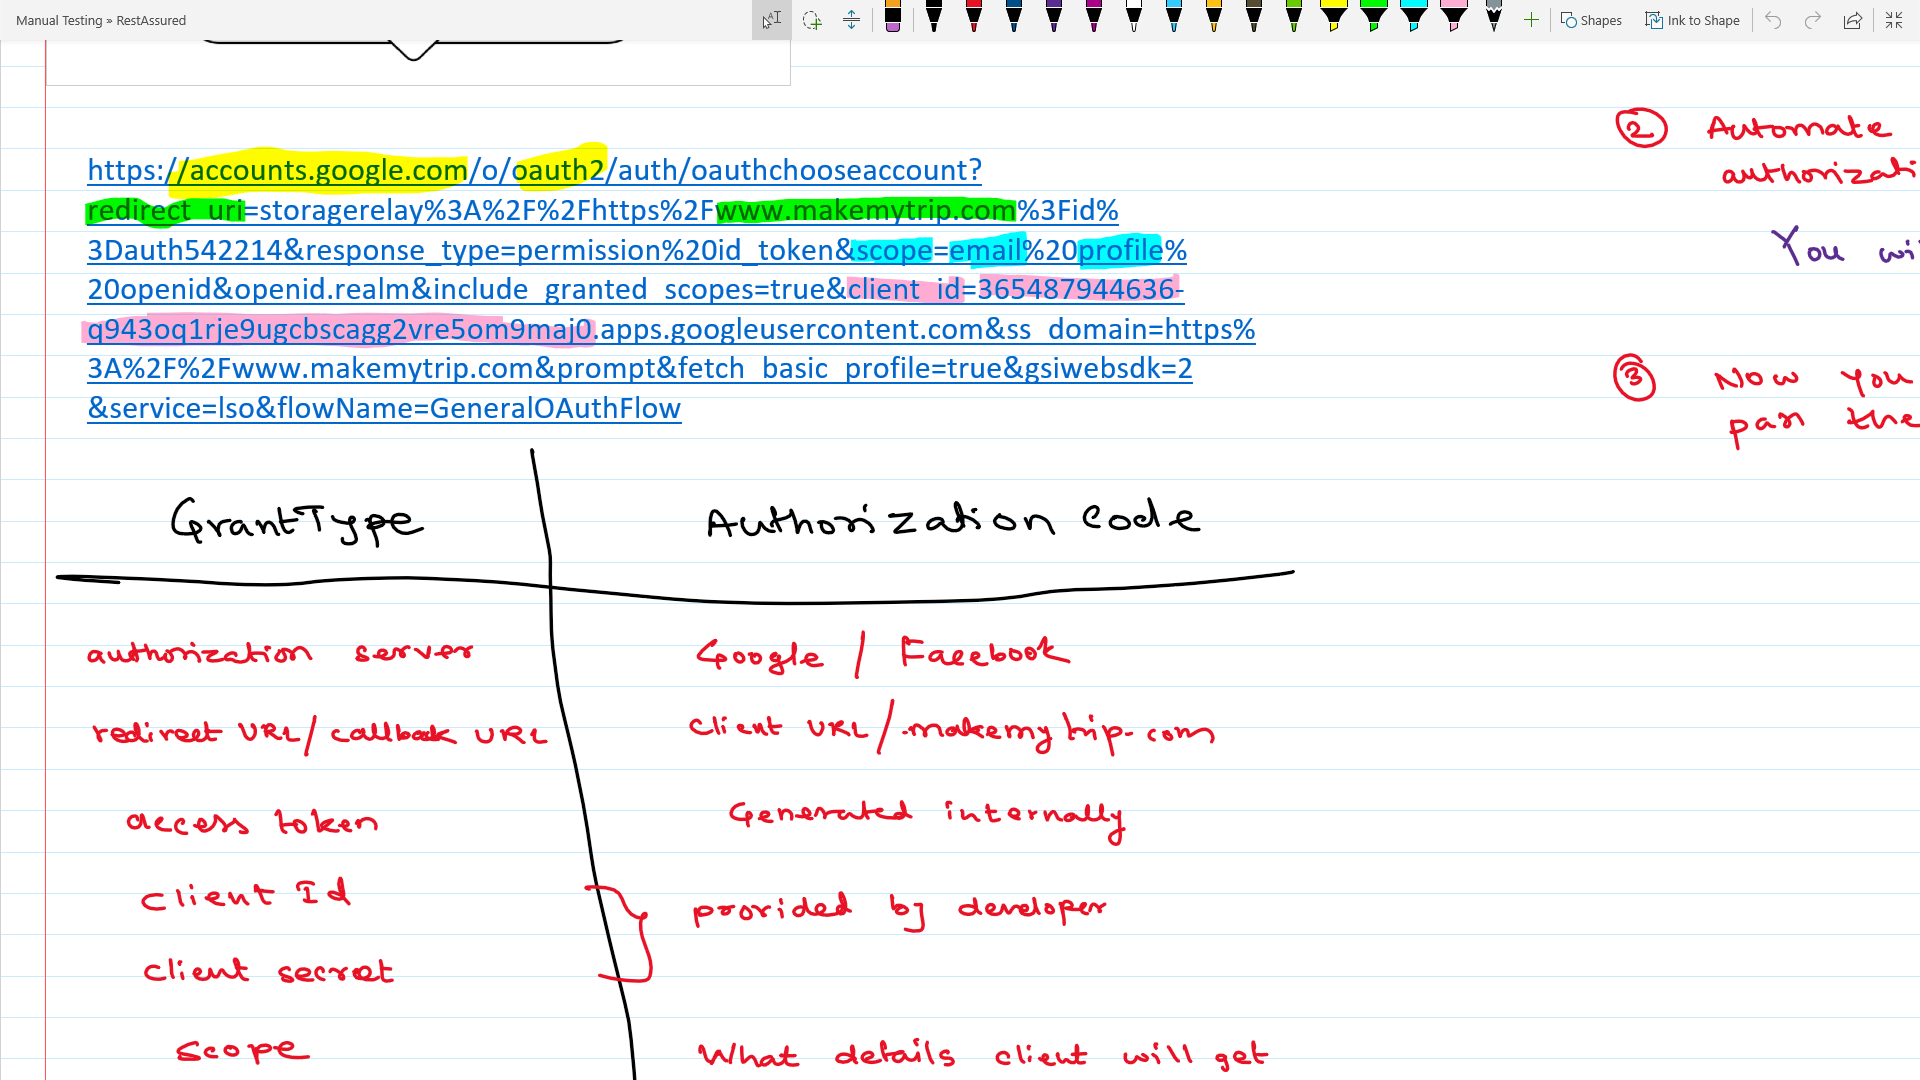 Manual Testing » RestAssured
Shapes
Ink to Shape
https://accounts.google.com/o/oauth2/auth/oauthchooseaccount?
redirect_uri=storagerelay%3A%2F%2Fhttps%2Fwww.makemytrip.com%3Fid%
3Dauth542214&response_type=permission%20id_token&scope=email%20profile%
20openid&openid.realm&include_granted_scopes=true&client_id=365487944636-
q943oq1rje9ugcbscagg2vre5om9maj0.apps.googleusercontent.com&ss_domain=https%
3A%2F%2Fwww.makemytrip.com&prompt&fetch_basic_profile=true&gsiwebsdk=2
&service=lso&flowName=GeneralOAuthFlow
② Automate
authorizati
You wi
③ Now you
pass the
GrantType Authorization Code
authorization server Google / Facebook
redirect URL/ callback URL client URL/ .makemytrip.com
access token Generated internally
client Id
provided by developer
client secret
scope What details client will get